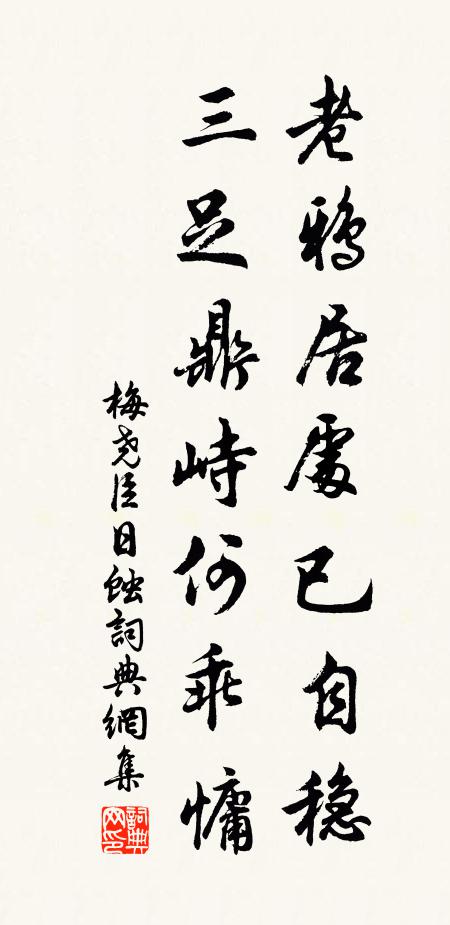 老鴉居處已自穩
三足鼎峙何乖慵
梅堯臣日蝕詞典網集
詞典網印